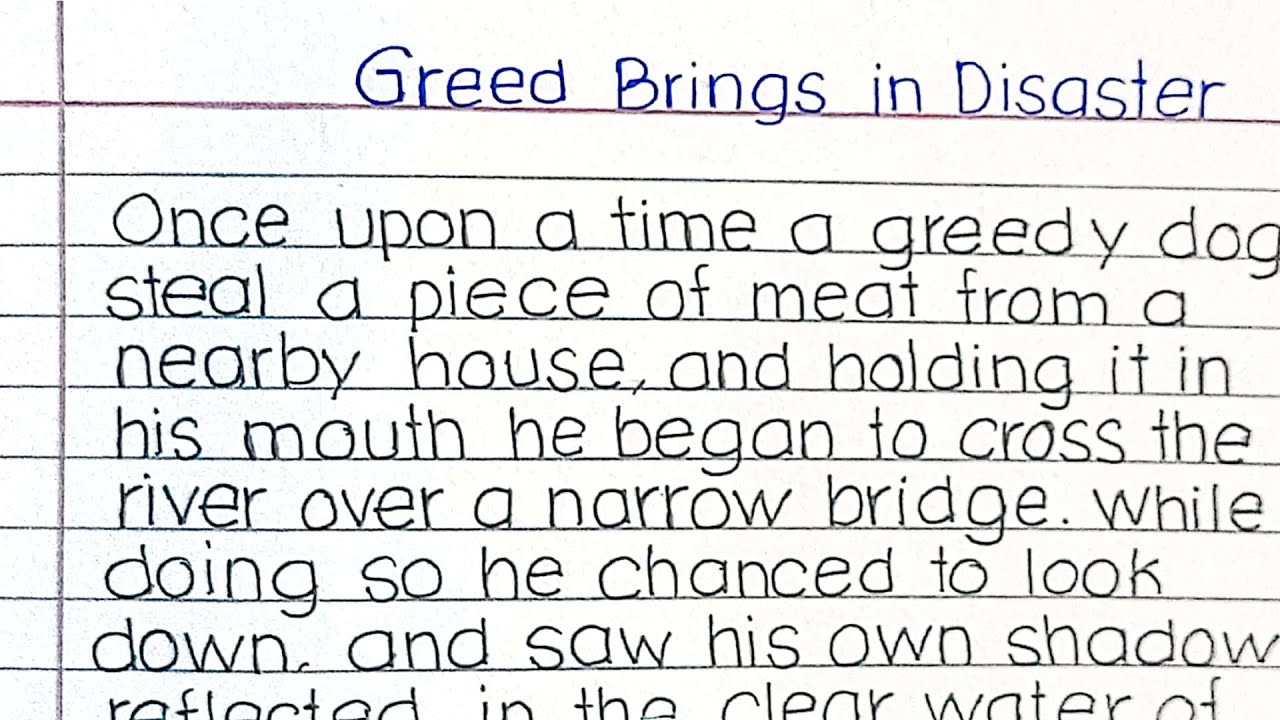 Greed Brings in Disaster
Once upon a time a greedy dog
steal a piece of meat from a
nearby house, and holding it in
his mouth he began to cross the
river over a narrow bridge. While
doing so he chanced to look
down. and saw his own shadow
reflected in the clear water of